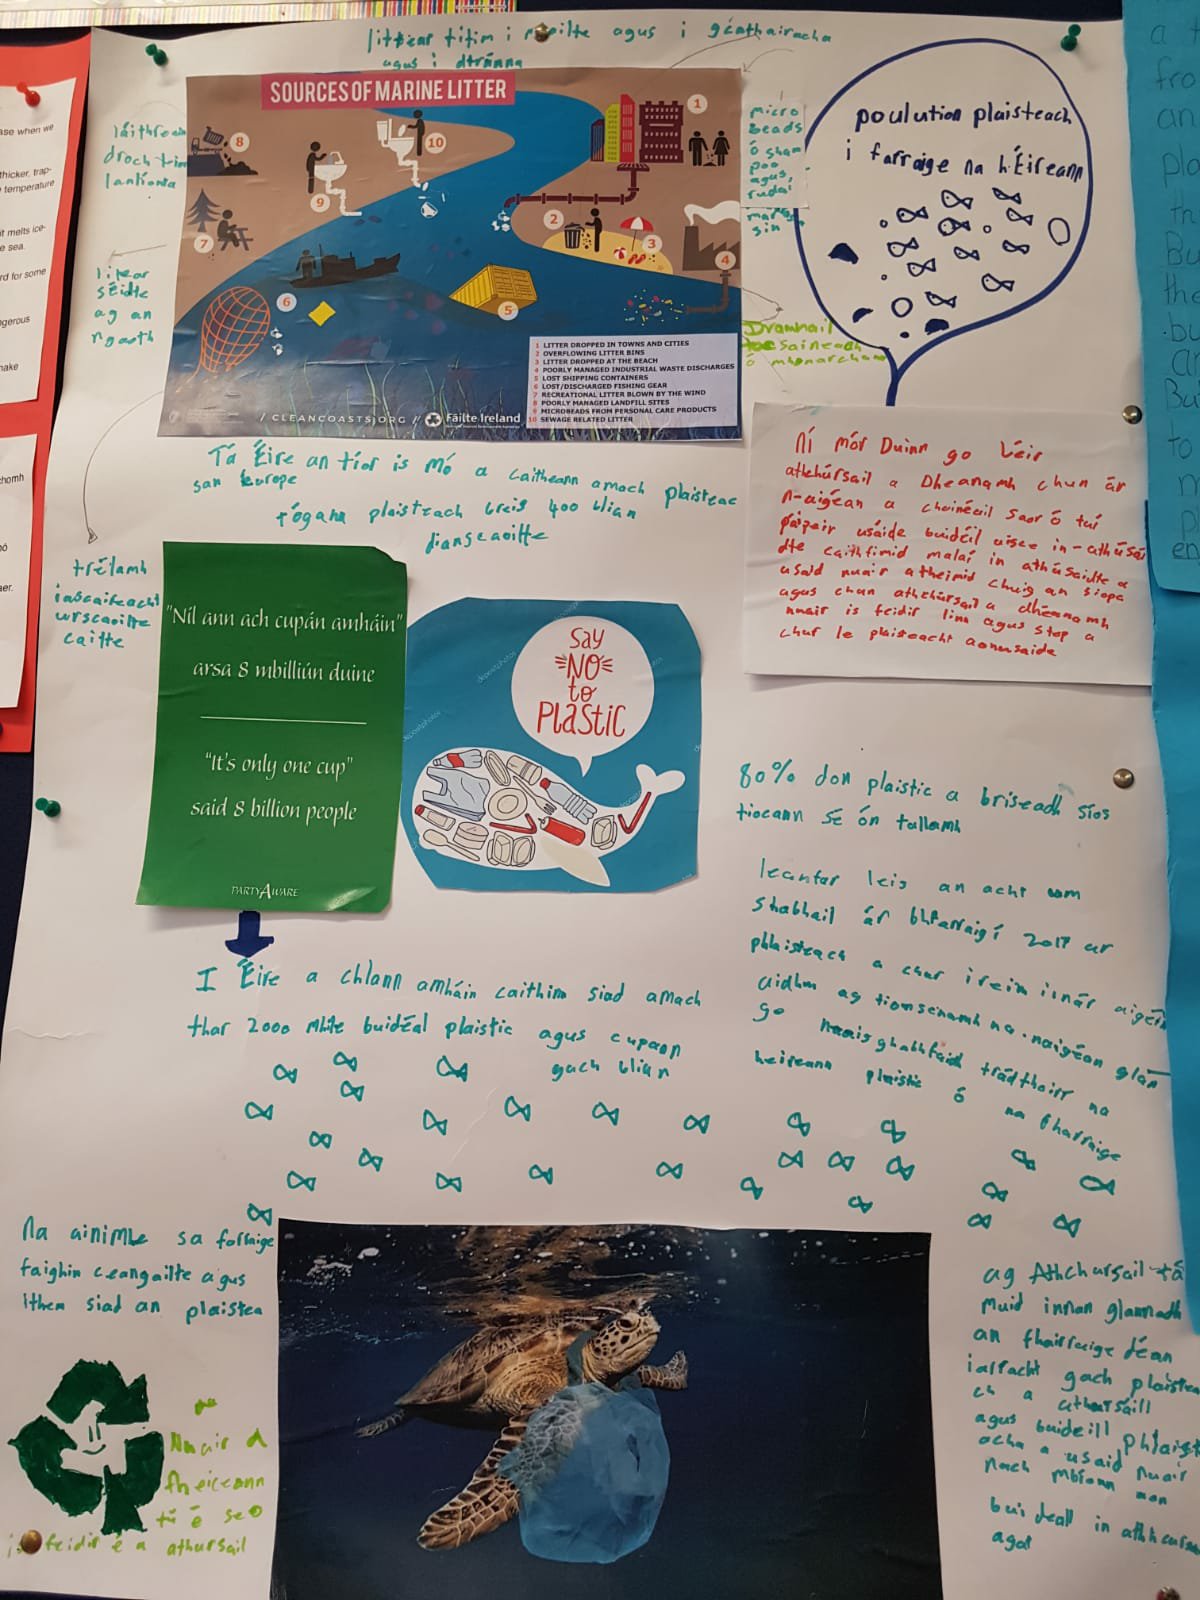 littear titim i mbailte agus i gcathairacha
agus i dtránna
SOURCES OF MARINE LITTER
1
2
3
4
5
6
7
8
9
10
1 LITTER DROPPED IN TOWNS AND CITIES
2 OVERFLOWING LITTER BINS
3 LITTER DROPPED AT THE BEACH
4 POORLY MANAGED INDUSTRIAL WASTE DISCHARGES
5 LOST SHIPPING CONTAINERS
6 LOST/DISCHARGED FISHING GEAR
7 RECREATIONAL LITTER BLOWN BY THE WIND
8 POORLY MANAGED LANDFILL SITES
9 MICROBEADS FROM PERSONAL CARE PRODUCTS
10 SEWAGE RELATED LITTER
/ CLEANCOASTS.ORG //
Fáilte Ireland
láithreain
droch
lanlionta
litear
séidte
ag an
ngaoth
micro
beads
ó sham
poo
agus
rudaí
mar
sin
Dramhail
ó mhonarchana
poulution plaisteach
i farraige na hÉireann
Tá Éire an tíor is mó a caitheann amach plaisteac
san Europe
tógann plaisteach breis 400 blian
dianscaoilte
trélamh
iascaireacht
urscaoilte
caitte
Ní mór Duinn go Léir
athchúrsáil a Dheanamh chun ár
n-aigéan a choinéail saor ó tuí
páipéir usáide buidéil uisce in-athúsái
dte caithfimid malaí in athúsaidte a
usaid nuair atheimid chuig an siopa
agus chun athchúrsail a dhéanamh
nuair is feidir linn agus stop a
chur le plaisteacht aonusaide
"Níl ann ach cupán amháin"
arsa 8 mbilliún duine
"It's only one cup"
said 8 billion people
PARTYAWARE
say
NO
to
PLaStiC
depositphotos
80% don plaistic a briseadh síos
tiocann sé ón tallamh
leantar leis an acht um
Shabhail ár bhfarraigí 2017 ar
phlaisteach a chur ireim innár aigéin
aidhm ag tionscnamh na naigéan glan
go nghabhfaid trádthoirr na
heireann plaistic ó na fharraige
I Éire a chlann amháin caithim siad amach
thar 2000 mhíle buidéal plaistic agus cupaon
gach blian
Na ainimhe sa forraige
faighin ceangailte agus
Ithem siad an plaistea
ag Athchursail tá
muid innan glannadh
an fhairraige déan
iarracht gach plaistea
ch a athursáill
agus buideill phlaist
acha a usaid nuair
nach mbíonn aon
buideall in athchursa
agat
Nuair a
fheiceann
tú é seo
is feidir é a athursail